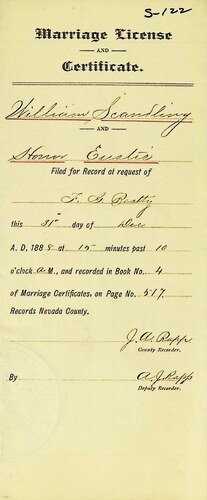 S-122
Marriage License
AND
Certificate.
William Scandling
AND
Honor Eustis
Filed for Record at request of
F. G. Beatty
this 31st day of Dec
A. D, 1888 at 15 minutes past 10
o'clock A M., and recorded in Book No. 4
of Marriage Certificates, on Page No. 517,
Records Nevada County.
J. A. Rapp
County Recorder.
By A. J. Rapp
Deputy Recorder.